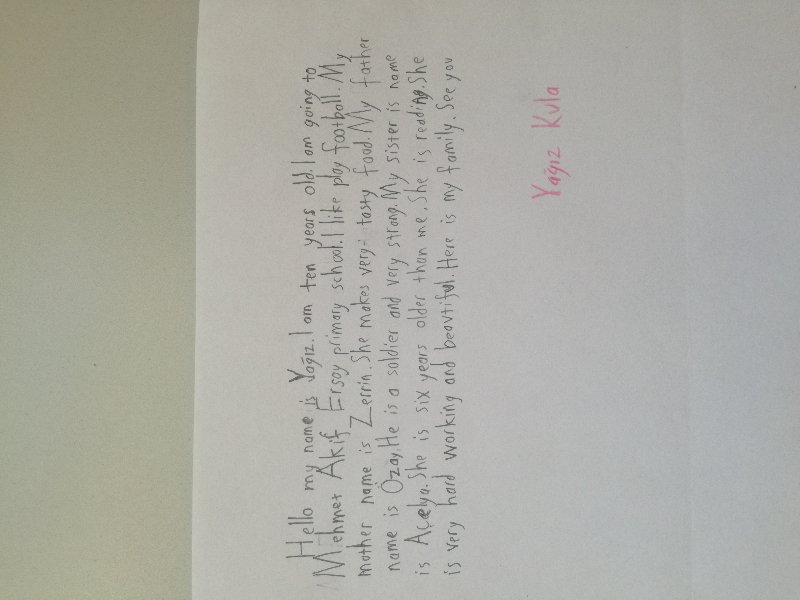 Hello my name is Yağız. I am ten years old. I am going to
Mehmet Akif Ersoy primary school. I like play football. My
mother name is Zerrin. She makes very tasty food. My father
name is Özay. He is a soldier and very strong. My sister is name
is Açelya. She is six years older than me. She is reading. She
is very hard working and beautiful. Here is my family. See you
Yağız Kula